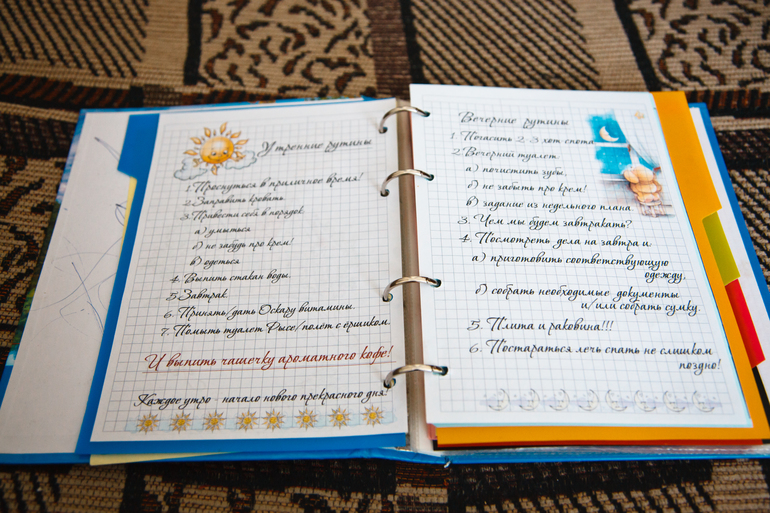 Утренние рутины
1. Проснуться в приличное время!
2. Заправить кровать
3. Привести себя в порядок
а) умыться
б) не забудь про крем!
в) одеться
4. Выпить стакан воды.
5. Завтрак
6. Принять/дать Оскару витамины
7. Помыть туалет Рысе/полет с ёршиком.
И выпить чашечку ароматного кофе!
Каждое утро - начало нового прекрасного дня!
Вечерние рутины
1. Погасить 2-3 хот спота
2. Вечерний туалет.
а) почистить зубы.
б) не забыть про крем!
в) задание из недельного плана
3. Чем мы будем завтракать?
4. Посмотреть дела на завтра и
а) приготовить соответствующую
одежду.
б) собрать необходимые документы
и/или собрать сумку.
5. Плита и раковина!!!
6. Постараться лечь спать не слишком
поздно!